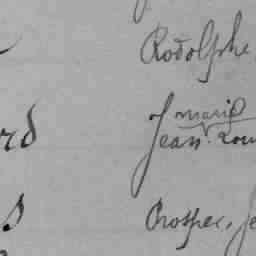 Rodolphe
rd marie
Jean. Lou
s Prosper, Je